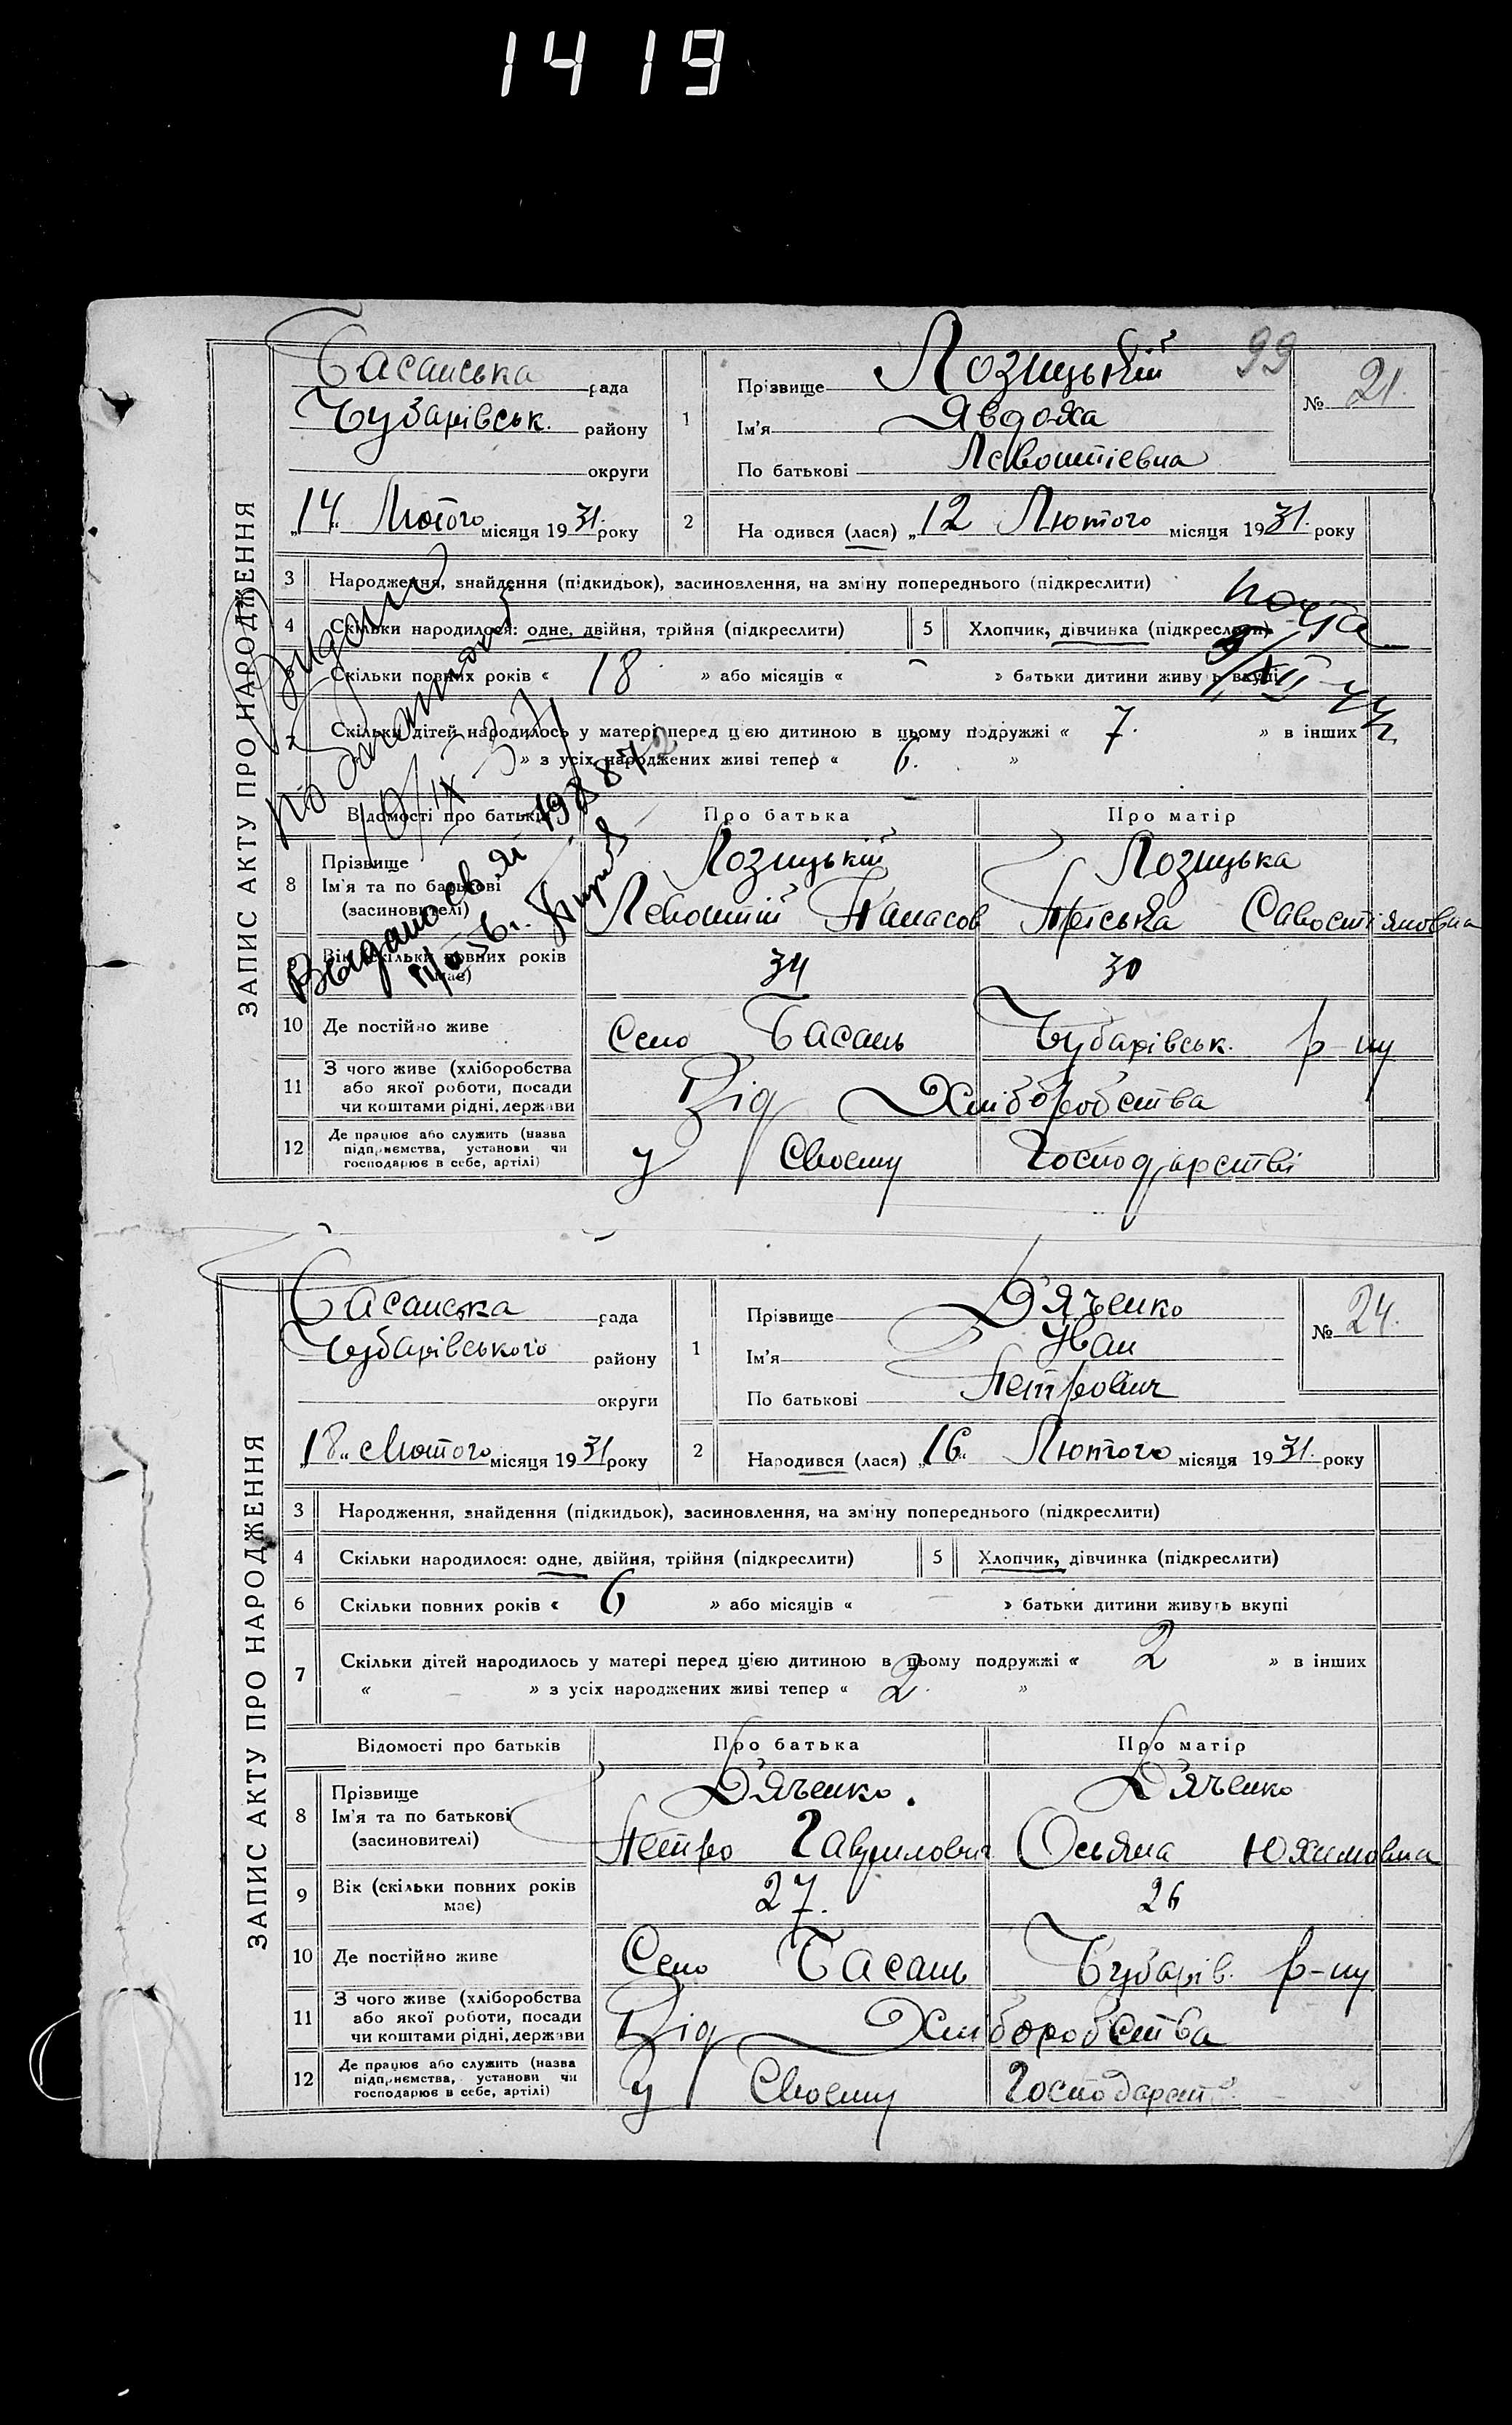 1419
99
ЗАПИС АКТУ ПРО НАРОДЖЕННЯ
Басанська рада
Чубарівськ. району
округи
„14“ Лютого місяця 1931. року
1
Прізвище Лозицький
Ім'я Явдоха
По батькові Левонтіевна
№ 21.
2
На одився (лася) „12 Лютого місяця 1931. року
3 Народження, знайдення (підкидьок), засиновлення, на зміну попереднього (підкреслити)
4 Скільки народилося: одне, двійня, трійня (підкреслити)
5 Хлопчик, дівчинка (підкреслити)
Скільки повних років « 18 » або місяців « – » батьки дитини живуть вкупі
7 Скільки дітей народилось у матері перед цією дитиною в цьому подружжі « 7. » в інших
» з усіх народжених живі тепер « 6. »
Відомості про батьків Про батька Про матір
8 Прізвище
Ім'я та по батькові
(засиновителі)
Лозицький Лозицька
Левонтій Панасов Пріська Савостіяновна
Вік (скільки повних років має) 34 30
10 Де постійно живе Село Басань Чубарівськ. р-ну
11 З чого живе (хліборобства
або якої роботи, посади
чи коштами рідні, держави
Від Хліборобства
12 Де працює або служить (назва
підприємства, установи чи
господарює в себе, артілі)
у Своему Господарстві
ЗАПИС АКТУ ПРО НАРОДЖЕННЯ
Басанська рада
Чубарівського району
округи
„18“ Лютого місяця 1931 року
1
Прізвище Д'яченко
Ім'я Иван
По батькові Петрович
№ 24.
2
Народився (лася) „16“ Лютого місяця 1931. року
3 Народження, знайдення (підкидьок), засиновлення, на зміну попереднього (підкреслити)
4 Скільки народилося: одне, двійня, трійня (підкреслити)
5 Хлопчик, дівчинка (підкреслити)
6 Скільки повних років « 6 » або місяців « – » батьки дитини живуть вкупі
7 Скільки дітей народилось у матері перед цією дитиною в цьому подружжі « 2 » в інших
« » з усіх народжених живі тепер « 2. »
Відомості про батьків Про батька Про матір
8 Прізвище
Ім'я та по батькові
(засиновителі)
Д'яченко. Д'яченко
Петро Гаврилович Оляна Юхимовна
9 Вік (скільки повних років має) 27. 26
10 Де постійно живе Село Басань Чубарів. р-ну
11 З чого живе (хліборобства
або якої роботи, посади
чи коштами рідні, держави
Від Хліборобства
12 Де працює або служить (назва
підприємства, установи чи
господарює в себе, артілі)
у Своему Господарст